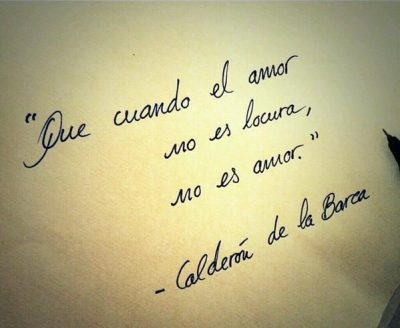 “Que cuando el amor
no es locura,
no es amor.”
- Calderón de la Barca